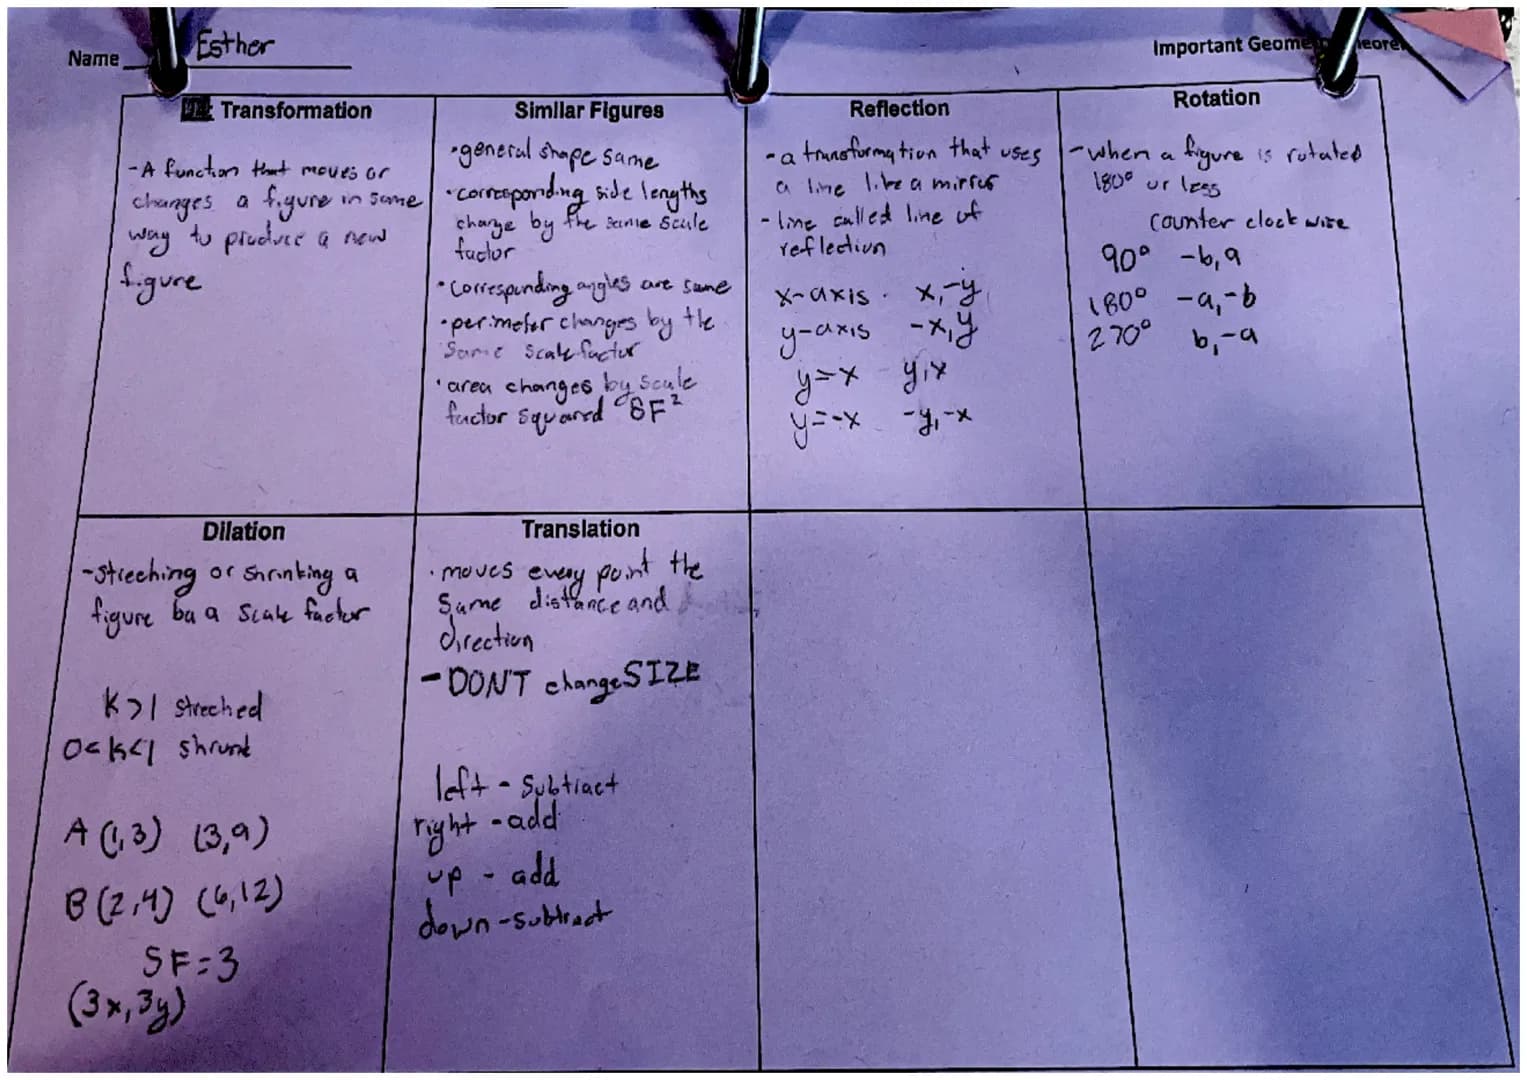 Name Esther
Important Geome
Transformation
-A function that moves or
changes a figure in some
way to produce a new
figure
Similar Figures
•general shape same
•corresponding side lengths
change by the same scale
factor
•Corresponding angles are same
•perimeter changes by the
same scale factor
•area changes by scale
factor squared SF²
Reflection
-a transformation that uses
a line like a mirror
-line called line of
reflection
x-axis x,-y
y-axis -x,y
y=x y,x
y=-x -y,-x
Rotation
-when a figure is rotated
180° or less
counter clock wise
90° -b,a
180° -a,-b
270° b,-a
Dilation
-streching or shrinking a
figure ba a scale factor
K>1 streched
0<k<1 shrunk
A (1,3) (3,9)
B (2,4) (6,12)
SF=3
(3x,3y)
Translation
•moves every point the
same distance and
direction
-DON'T change SIZE
left - Subtract
right - add
up - add
down - subtract